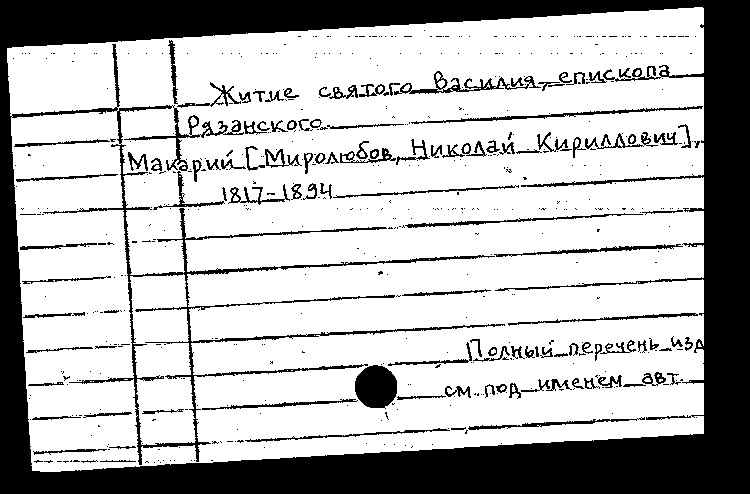 Житие святого Василия, епископа
Рязанского.
Макарий [Миролюбов, Николай Кириллович],
1817-1894
Полный перечень изд
см. под именем авт.